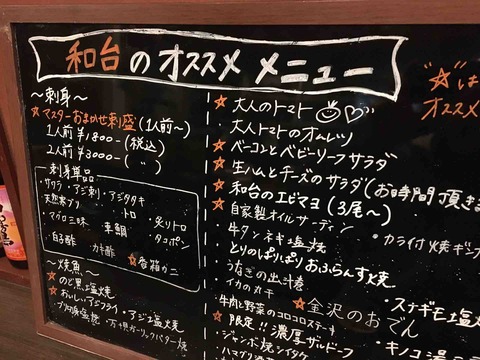 和台のオススメメニュー
～刺身～
☆マスターおまかせ刺盛(1人前～)
1人前 ¥1800-(税込)
2人前 ¥3000-( 〃 )
刺身単品
サワラ・アジ刺・アジタタキ
天然寒ブリ ・トロ ・炙りトロ
・マグロ三味 ・車鯛 ・タコポン
・白子酢 ・カキ酢 ☆香箱ガニ
～焼魚～
☆のど黒塩焼
☆おいしいアジフライ・アジ塩焼
・万十貝ガーリックバター焼
☆大人のトマト
大人トマトのオムレツ
☆ベーコンとベビーリーフサラダ
☆生ハムとチーズのサラダ(お時間頂きま
☆和台のエビマヨ(3尾～)
自家製オイルサーディン
牛タンネギ塩焼
☆とりのぱりぱりおふらんす焼
うなぎの出汁巻
イカのカキ
☆金沢のおでん
・牛肉と野菜のコロコロステーキ
☆限定!!濃厚ザルドーフ
・ジャンボ椎茸シイタケ
"☆"は
オススメ
・カライカ焼ギン
・スナギモ塩焼
・キノコ